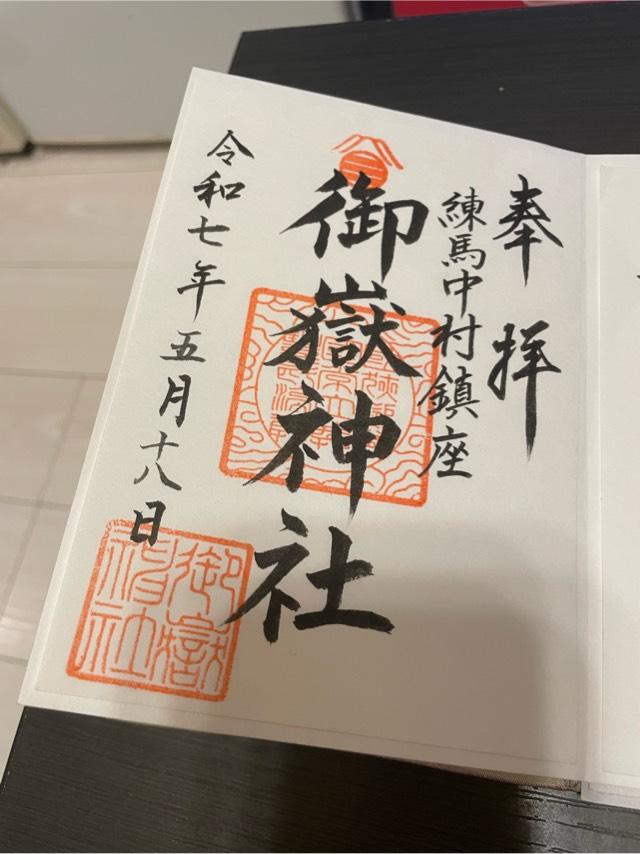 奉拝
練馬中村鎮座
御嶽神社
令和七年五月十八日
御嶽
神社